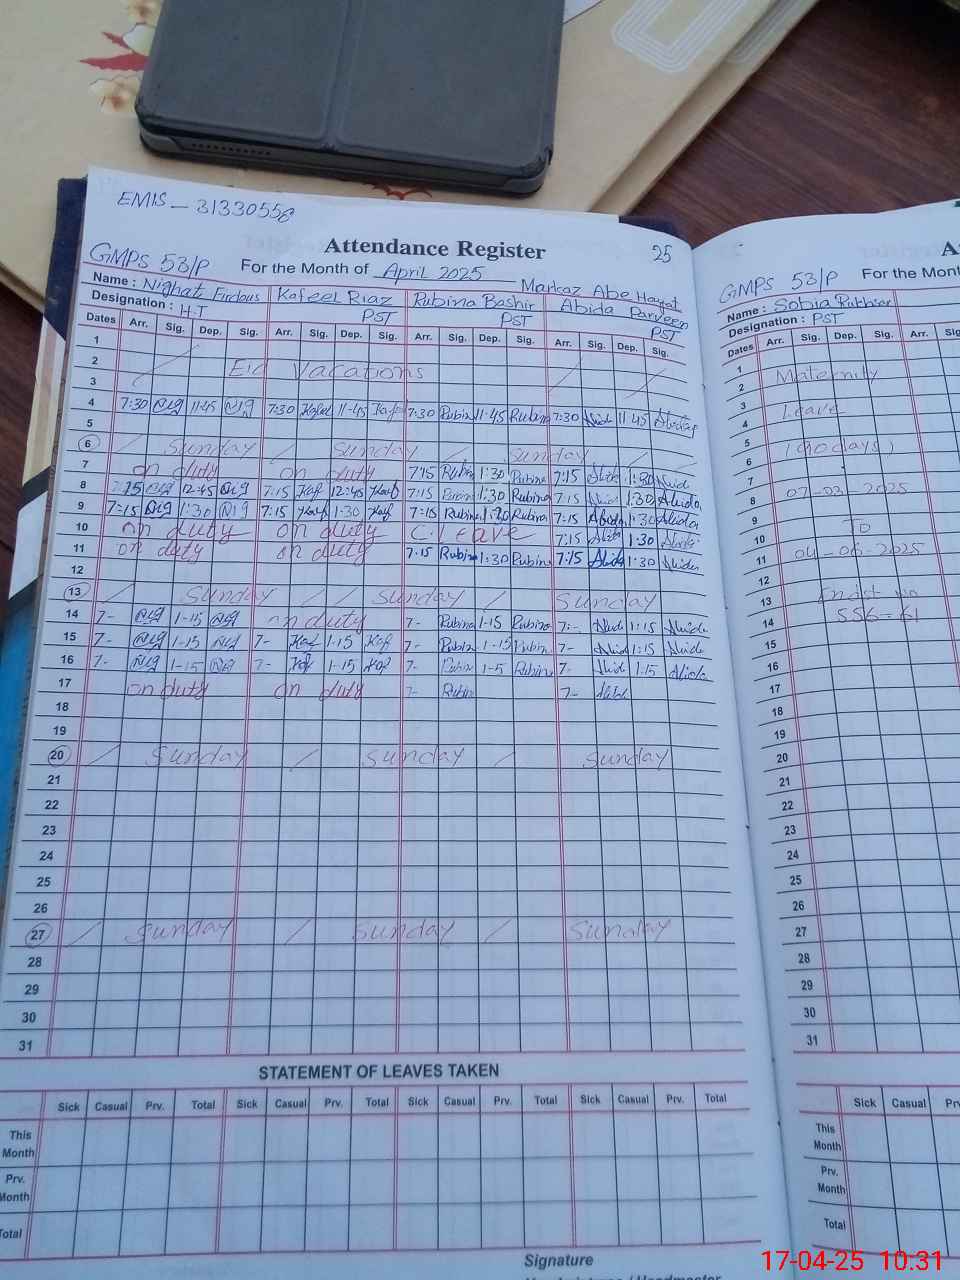 EMIS - 31330558
Attendance Register 25
GMPS 53/P For the Month of April 2025 Markaz Abe Hayyat
Name: Nighat Firdous Kafeel Riaz Rubina Bashir Abida Parveen
Designation: H.T PST PST PST
Dates Arr. Sig. Dep. Sig. Arr. Sig. Dep. Sig. Arr. Sig. Dep. Sig. Arr. Sig. Dep. Sig.
1
2 Eid Vacations
3
4 7:30 11:45 7:30 11-45 7:30 Rubina 11:45 Rubina 7:30 Abid 11:45 Abida
5
6 Sunday Sunday Sunday
7 on duty on duty 7:15 Rubin 1:30 Rubina 7:15 1:30
8 7:15 12:45 7:15 Kaf 12:45 Kaf 7:15 1:30 Rubina 7:15 1:30 Abida
9 7:15 1:30 7:15 Kaf 1:30 Kaf 7:15 Rubina 1:30 Rubina 7:15 Abida 1:30 Abida
10 on duty on duty C. Leave 7:15 1:30
11 on duty on duty 7:15 Rubina 1:30 Rubina 7:15 Abida 1:30 Abida
12
13 Sunday Sunday Sunday
14 7- 1-15 on duty 7- Rubina 1-15 Rubina 7:- 1:15
15 7- 1-15 7- Kaf 1-15 Kaf 7- Rubina 1-15 Rubina 7- 1:15
16 7- 1-15 7- Kaf 1-15 Kaf 7- Rubin 1-5 Rubina 7- 1.15 Abida
17 on duty on duty 7- Rubin 7-
18
19
20 Sunday Sunday Sunday
21
22
23
24
25
26
27 Sunday Sunday Sunday
28
29
30
31
STATEMENT OF LEAVES TAKEN
Sick Casual Prv. Total Sick Casual Prv. Total Sick Casual Prv. Total Sick Casual Prv. Total
This Month
Prv. Month
Total
Signature
GMPS 53/P
For the Mont
Name: Sobia Rukhsar
Designation: PST
Dates Arr. Sig. Dep. Sig. Arr. Sig.
1
2 Maternity
3
4 Leave
5
6 (90 days)
7
8 07-03-2025
9
10 To
11 04-06-2025
12
13 Endst no
14 556-61
15
16
17
18
19
20
21
22
23
24
25
26
27
28
29
30
31
Sick Casual
This Month
Prv. Month
Total
17-04-25 10:31